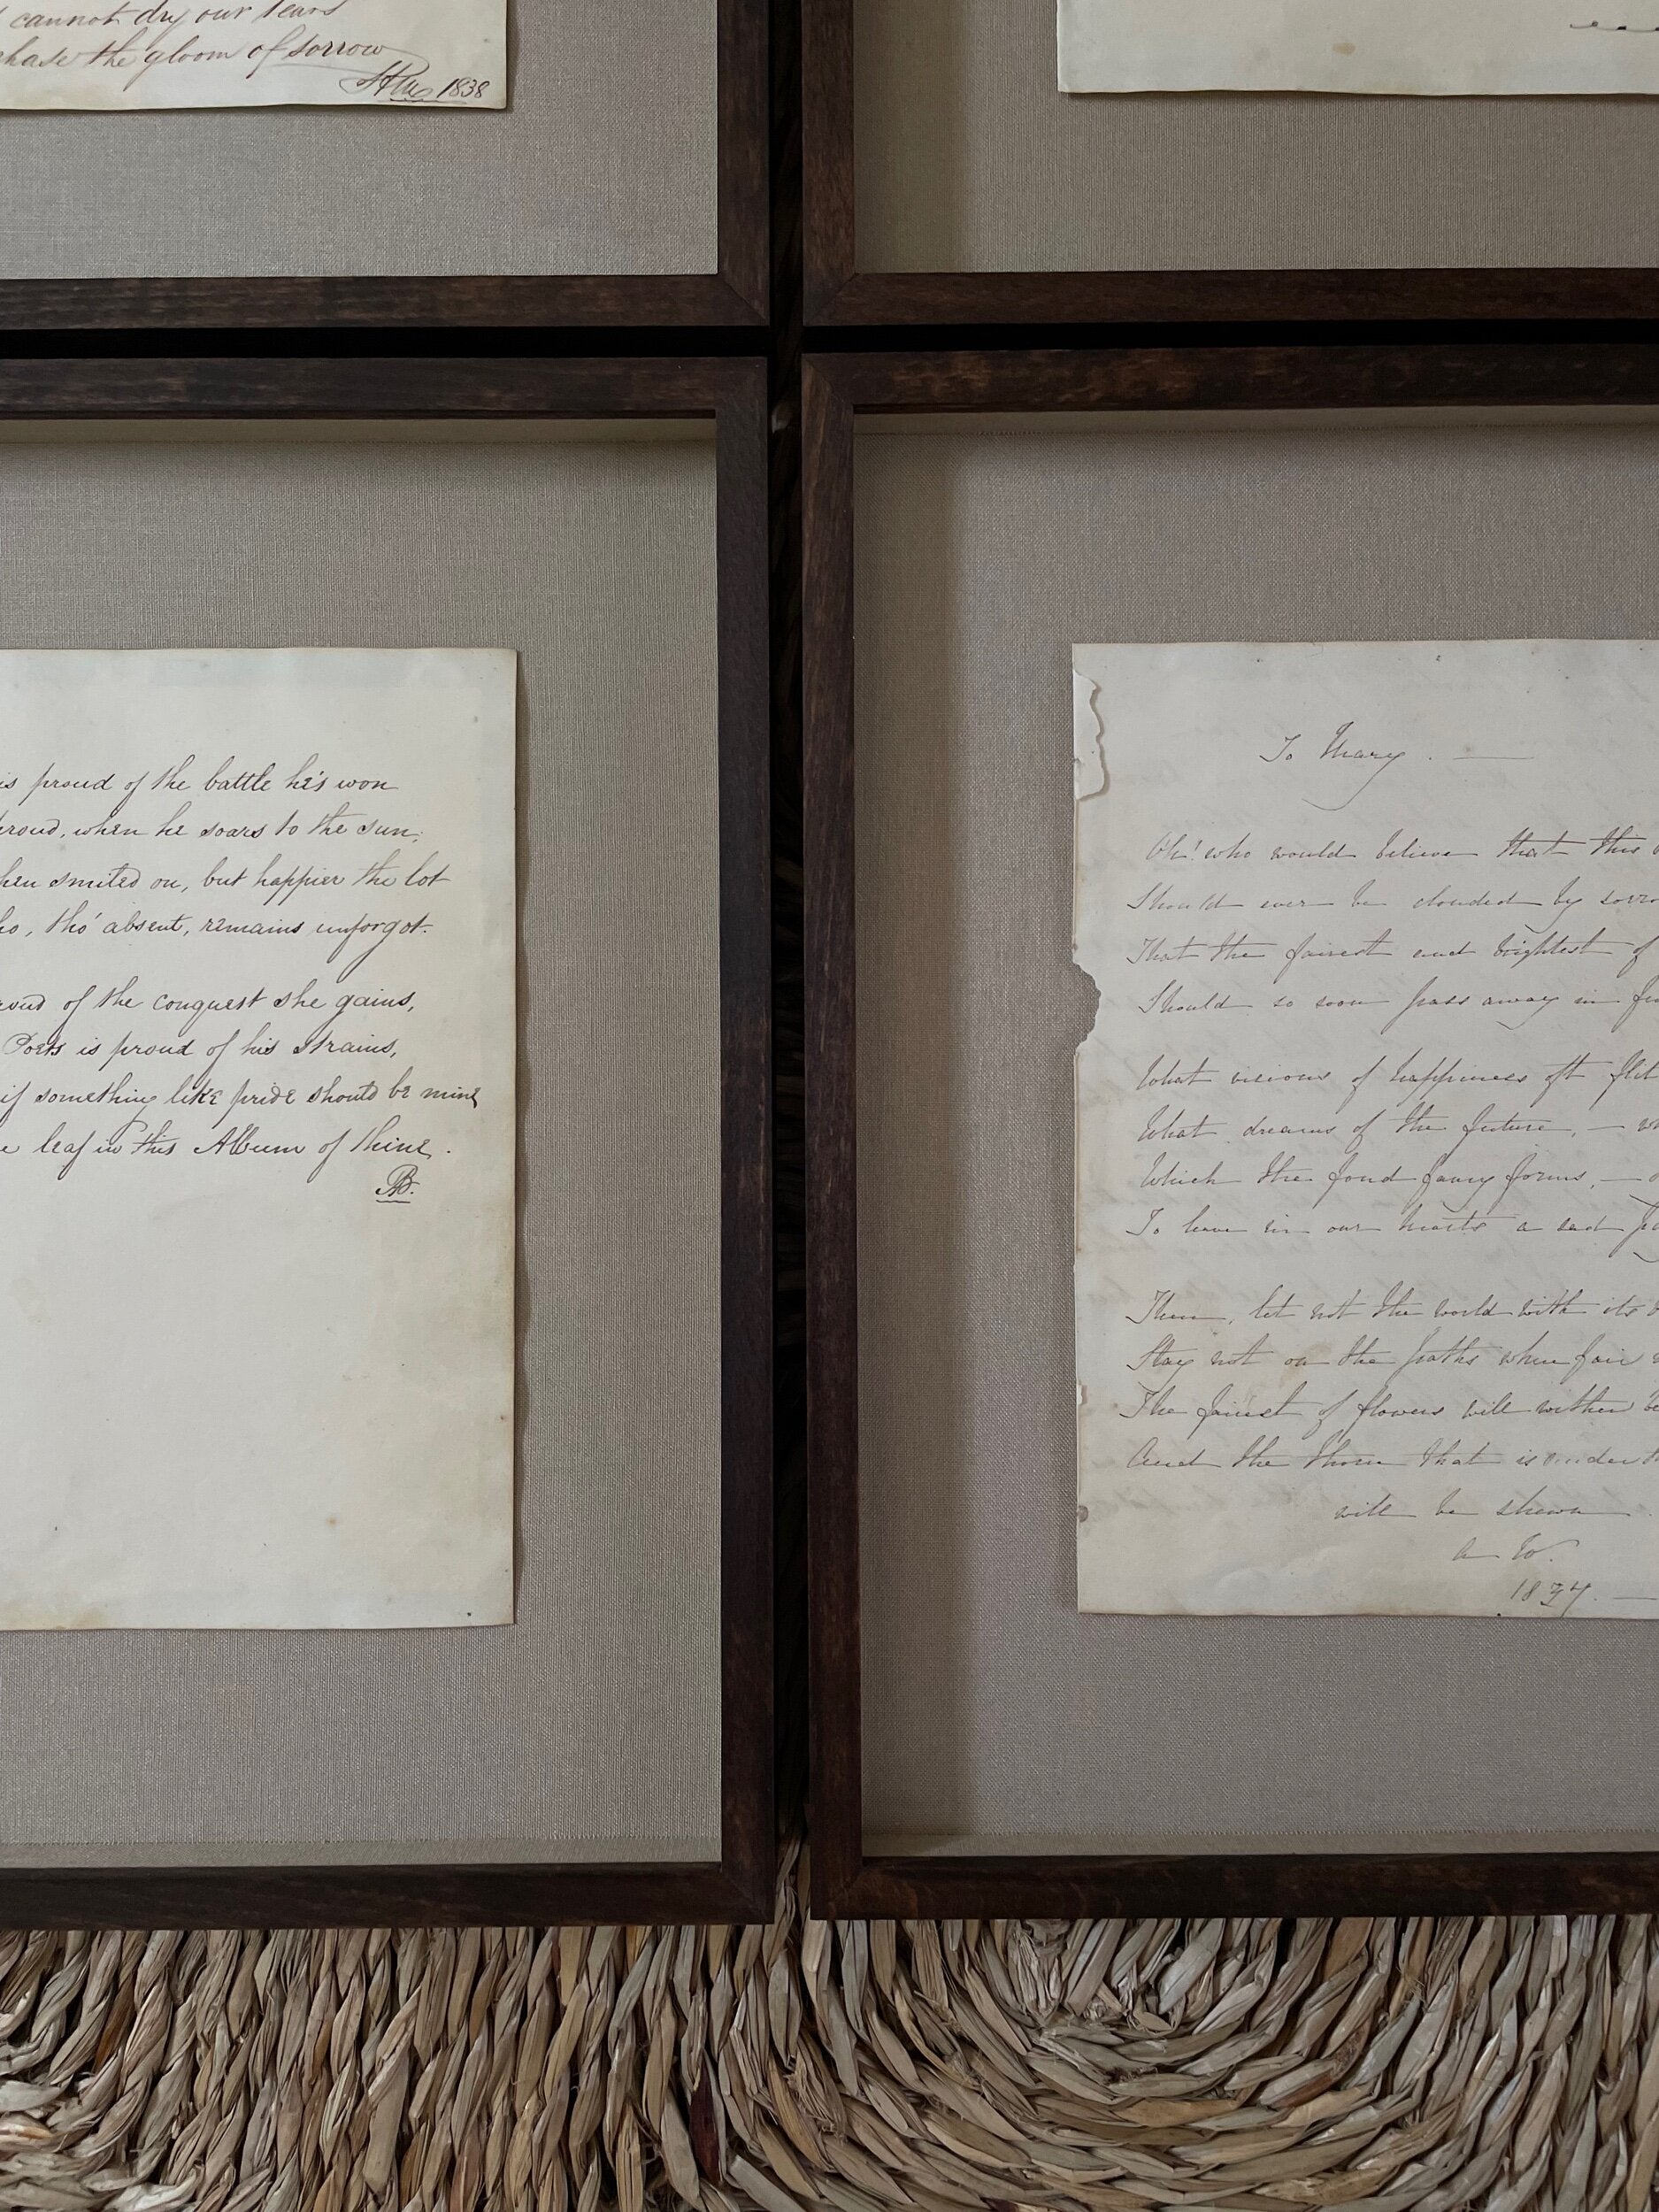 cannot dry our tears
chase the gloom of sorrow
1838
is proud of the battle he's won
proud, when he soars to the sun;
when smiled on, but happier the lot
who, tho' absent, remains unforgot.
proud of the conquest she gains,
Poets is proud of his strains,
if something like pride should be mine
leaf in this Album of thine.
AB.
To Mary. —
Oh! who would believe that this
Should ever be clouded by
That the fairest and brightest of
Should so soon pass away in
What visions of happiness oft
What dreams of the future, —
Which the fond fancy forms, —
To leave in our hearts a sad
Then, let not the world with its
Stay not on the paths when fair
The fairest of flowers will wither
And the thorn that is under
will be shewn
A W.
1837. —